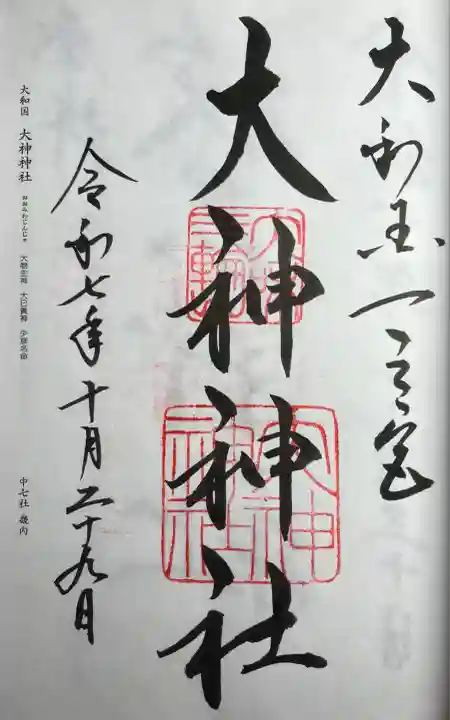 大和国一之宮
大神神社
令和七年十月二十九日
大和国 大神神社 おおみわじんじゃ 大物主神 大己貴神 少彦名命
中七社 畿内
三輪
大神神社